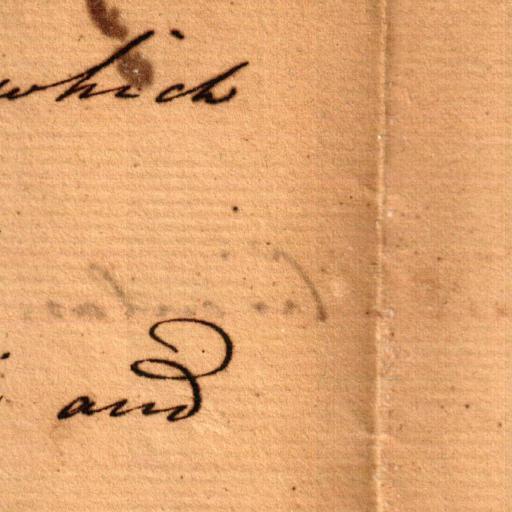 which
and